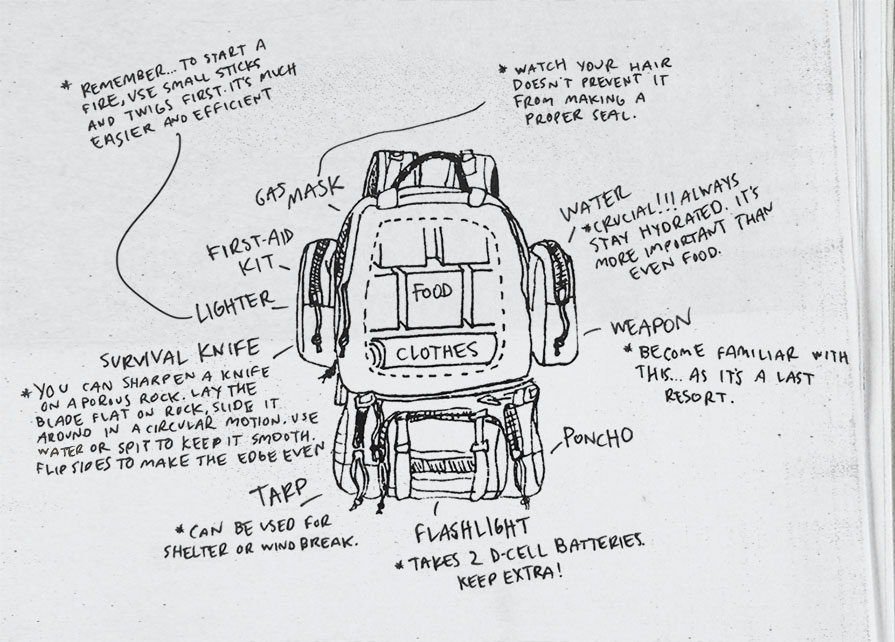 * REMEMBER... TO START A
FIRE, USE SMALL STICKS
AND TWIGS FIRST. IT'S MUCH
EASIER AND EFFICIENT
* WATCH YOUR HAIR
DOESN'T PREVENT IT
FROM MAKING A
PROPER SEAL.
GAS MASK
FIRST-AID
KIT
LIGHTER
SURVIVAL KNIFE
* YOU CAN SHARPEN A KNIFE
ON A POROUS ROCK. LAY THE
BLADE FLAT ON ROCK, SLIDE IT
AROUND IN A CIRCULAR MOTION. USE
WATER OR SPIT TO KEEP IT SMOOTH.
FLIP SIDES TO MAKE THE EDGE EVEN
TARP
* CAN BE USED FOR
SHELTER OR WIND BREAK.
FOOD
CLOTHES
WATER
* CRUCIAL!!! ALWAYS
STAY HYDRATED. IT'S
MORE IMPORTANT THAN
EVEN FOOD.
WEAPON
* BECOME FAMILIAR WITH
THIS... AS IT'S A LAST
RESORT.
PONCHO
FLASHLIGHT
* TAKES 2 D-CELL BATTERIES.
KEEP EXTRA!